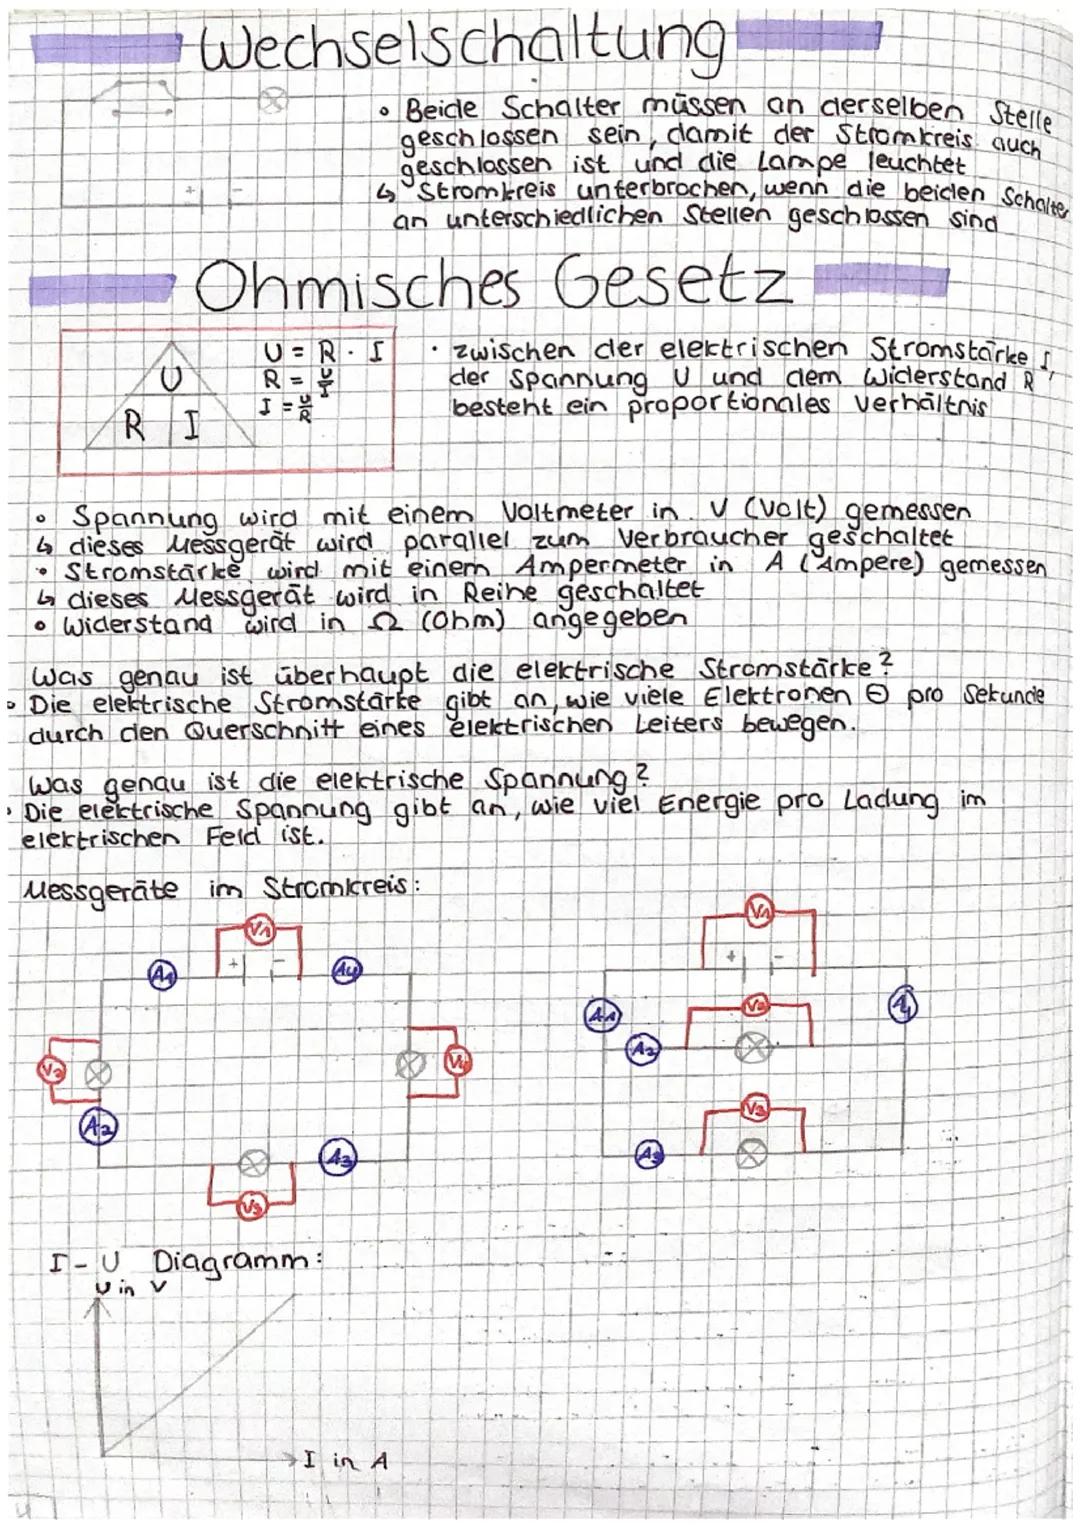 Wechselschaltung
• Beide Schalter müssen an derselben Stelle
geschlossen sein, damit der Stromkreis auch
geschlossen ist und die Lampe leuchtet
↳ Stromkreis unterbrochen, wenn die beiden Schalter
an unterschiedlichen Stellen geschlossen sind
+ -
Ohmisches Gesetz
U
R I
U = R · I
R = U/I
I = U/R
• zwischen der elektrischen Stromstärke I,
der Spannung U und dem Widerstand R
besteht ein proportionales Verhältnis
• Spannung wird mit einem Voltmeter in V (Volt) gemessen
↳ dieses Messgerät wird parallel zum Verbraucher geschaltet
• Stromstärke wird mit einem Ampermeter in A (Ampere) gemessen
↳ dieses Messgerät wird in Reihe geschaltet
• Widerstand wird in Ω (Ohm) angegeben
Was genau ist überhaupt die elektrische Stromstärke?
• Die elektrische Stromstärke gibt an, wie viele Elektronen ⊖ pro Sekunde
durch den Querschnitt eines elektrischen Leiters bewegen.
Was genau ist die elektrische Spannung?
• Die elektrische Spannung gibt an, wie viel Energie pro Ladung im
elektrischen Feld ist.
Messgeräte im Stromkreis:
V1
A1 + - A4
V2 V4
A2
A3
V3
V1
+ -
A1 V2 A4
A2
V3
A3
I-U Diagramm:
U in V
I in A